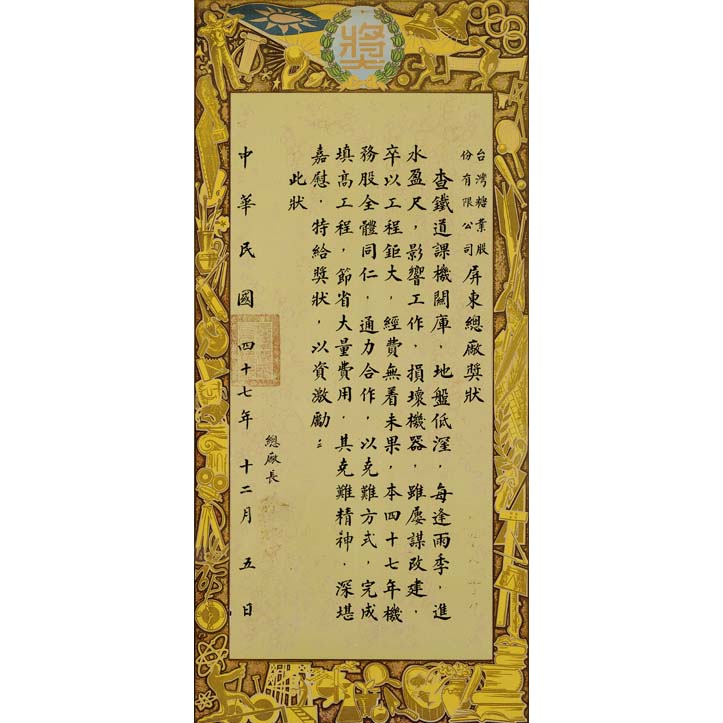 獎
台灣糖業股
份有限公司
屏東總厰獎狀
查鐵道課機關庫，地盤低溼，每逢雨季，進
水盈尺，影響工作，損壞機器，雖屢謀改建，
卒以工程鉅大，經費無着未果，本四十七年機
務股全體同仁，通力合作，以克難方式，完成
填高工程，節省大量費用．其克難精神．深堪
嘉慰．特給獎狀，以資激勵
此狀
總厰長
中華民國四十七年十二月五日